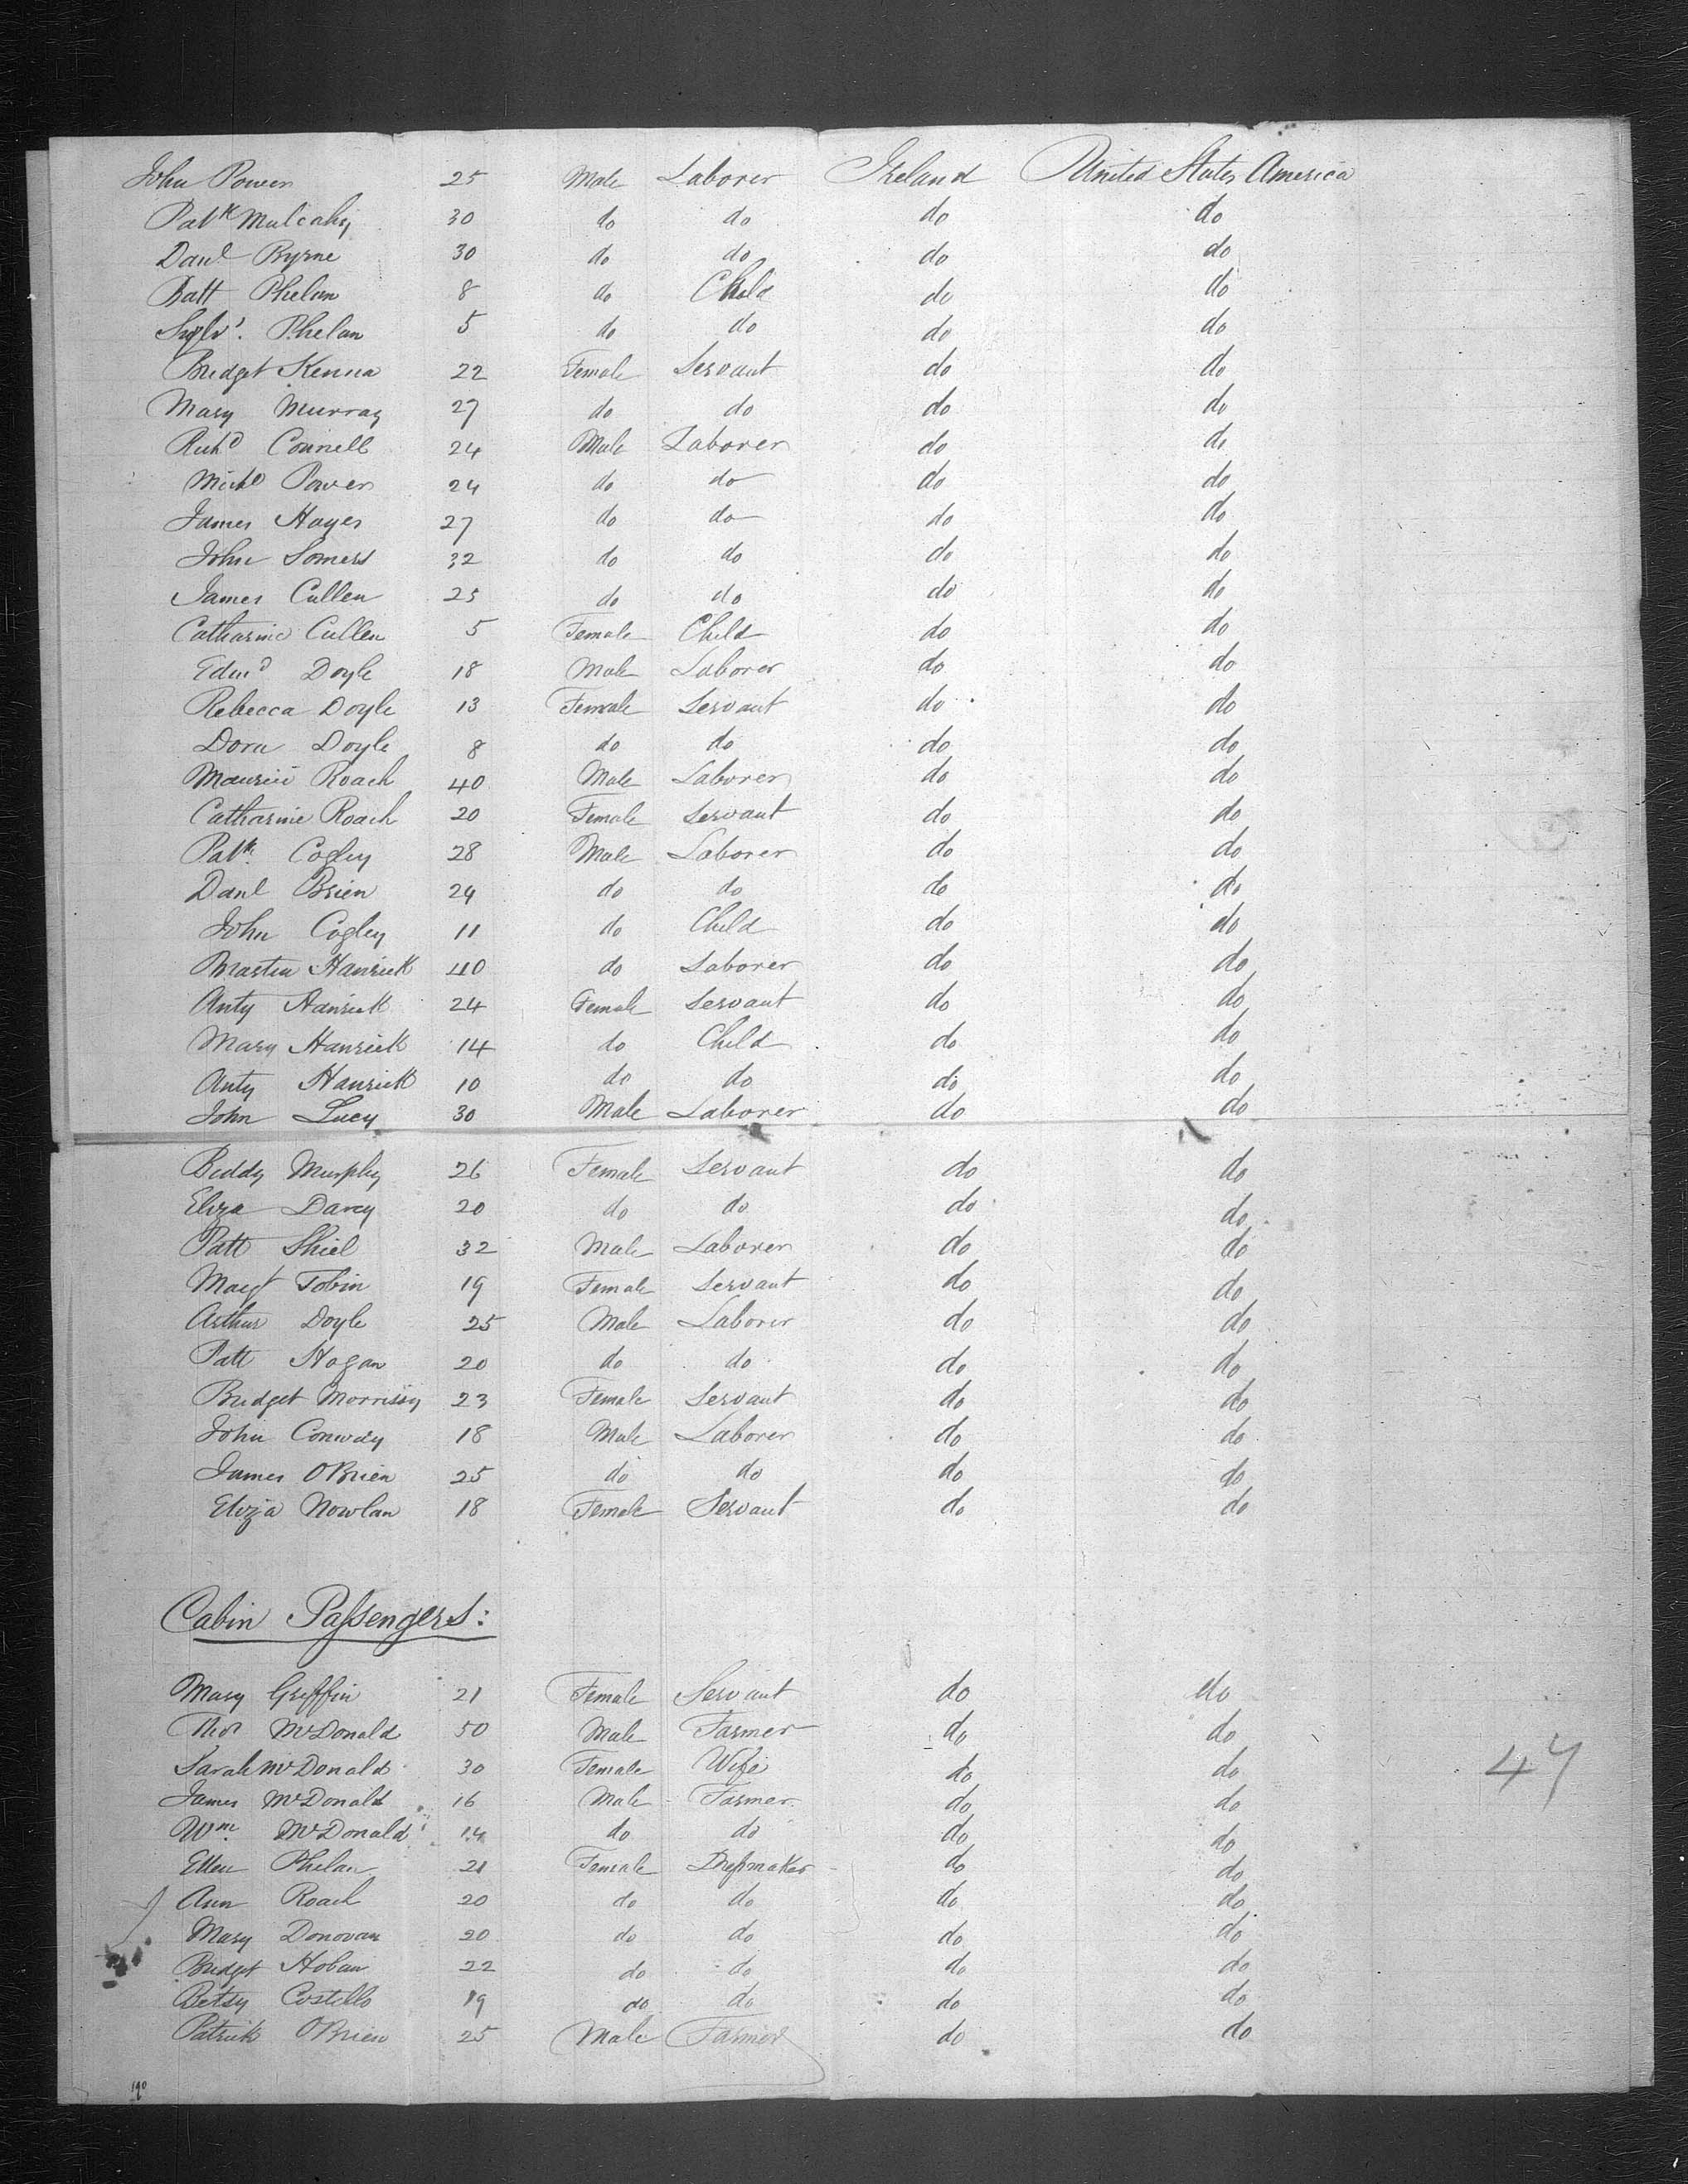 John Power 25 Male Laborer Ireland United States America
Patk Mulcahy 30 do do do do
Danl Byrne 30 do do do do
Batt Phelan 8 do Child do do
Sylvr. Phelan 5 do do do do
Bridget Kenna 22 Female Servant do do
Mary Murray 27 do do do do
Richd Connell 24 Male Laborer do do
Michl Power 24 do do do do
James Hayes 27 do do do do
John Somers 32 do do do do
James Cullen 25 do do do do
Catharine Cullen 5 Female Child do do
Edwd Doyle 18 Male Laborer do do
Rebecca Doyle 13 Female Servant do do
Dora Doyle 8 do do do do
Maurice Roach 40 Male Laborer do do
Catharine Roach 20 Female Servant do do
Patk. Cogley 28 Male Laborer do do
Danl Brien 24 do do do do
John Cogley 11 do Child do do
Martin Hanrick 40 do Laborer do do
Anty Hanrick 24 Female Servant do do
Mary Hanrick 14 do Child do do
Anty Hanrick 10 do do do do
John Lucy 30 Male Laborer do do
Biddy Murphy 26 Female Servant do do
Eliza Darcy 20 do do do do
Patt Shiel 32 Male Laborer do do
Margt Tobin 19 Female Servant do do
Arthur Doyle 25 Male Laborer do do
Patt Hogan 20 do do do do
Bridget Morrissy 23 Female Servant do do
John Conway 18 Male Laborer do do
James OBrien 25 do do do do
Eliza Nowlan 18 Female Servant do do
Cabin Passengers:
Mary Griffin 21 Female Servant do do
Thos McDonald 50 Male Farmer do do
Sarah McDonald 30 Female Wife do do
James McDonald 16 Male Farmer do do
Wm. McDonald 14 do do do do
Ellen Phelan 21 Female Dressmaker do do
Ann Roach 20 do do do do
Mary Donovan 20 do do do do
Bridget Hoban 22 do do do do
Betsy Costello 19 do do do do
Patrick OBrien 25 Male Farmer do do
47
190